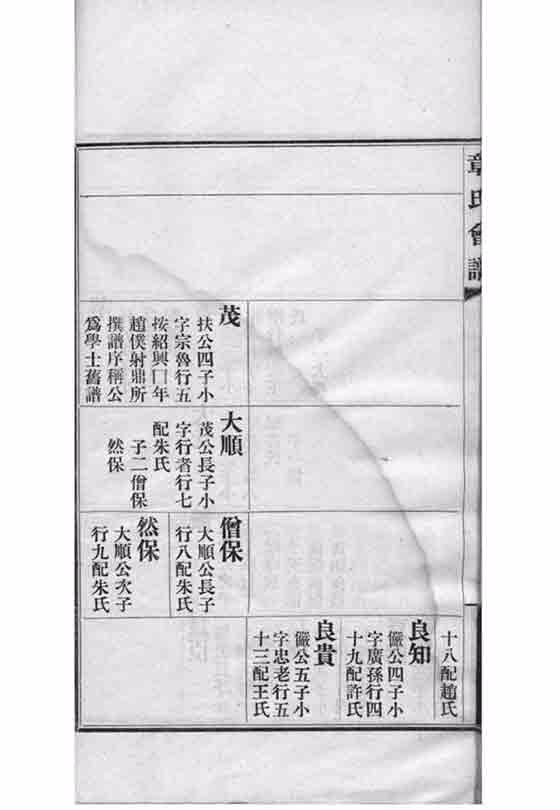 章氏會譜
茂
扶公四子小
字宗魯行五
按紹興冂年
趙僕射鼎所
撰譜序稱公
爲學士舊譜
大順
茂公長子小
字行者行七
配朱氏
子二僧保
然保
僧保
大順公長子
行八配朱氏
然保
大順公次子
行九配朱氏
十八配趙氏
良知
儼公四子小
字廣孫行四
十九配許氏
良貴
儼公五子小
字忠老行五
十三配王氏